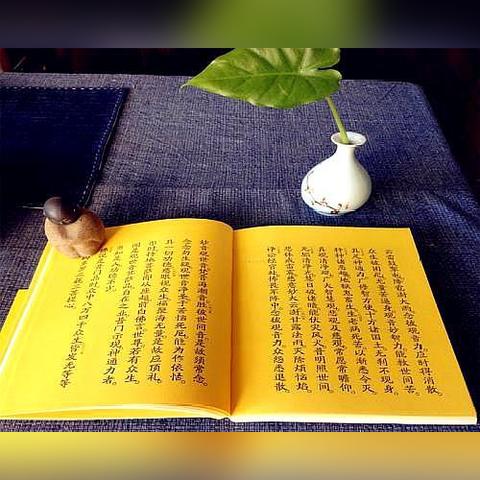 云雷鼓掣电降雹澍大雨念彼观音力应时得消散。
众生被困厄无量苦逼身观音妙智力能救世间苦。
具足神通力广修智方便十方诸国土无刹不现身。
种种诸恶趣地狱鬼畜生生老病死苦以渐悉令灭。
真观清净观广大智慧观悲观及慈观常愿常瞻仰。
无垢清净光慧日破诸暗能伏灾风火普明照世间。
悲体戒雷震慈意妙大云澍甘露法雨灭除烦恼焰。
诤讼经官处怖畏军阵中念彼观音力众怨悉退散。
妙音观世音梵音海潮音胜彼世间音是故须常念。
念念勿生疑观世音净圣于苦恼死厄能为作依怙。
具一切功德慈眼视众生福聚海无量是故应顶礼。
尔时持地菩萨即从座起前白佛言世尊若有众生
闻是观世音菩萨品自在之业普门示现神通力者。
当知是人功德不少。
佛说是普门品时众中八万四千众生皆发无等等
阿耨多罗三藐三菩提心。